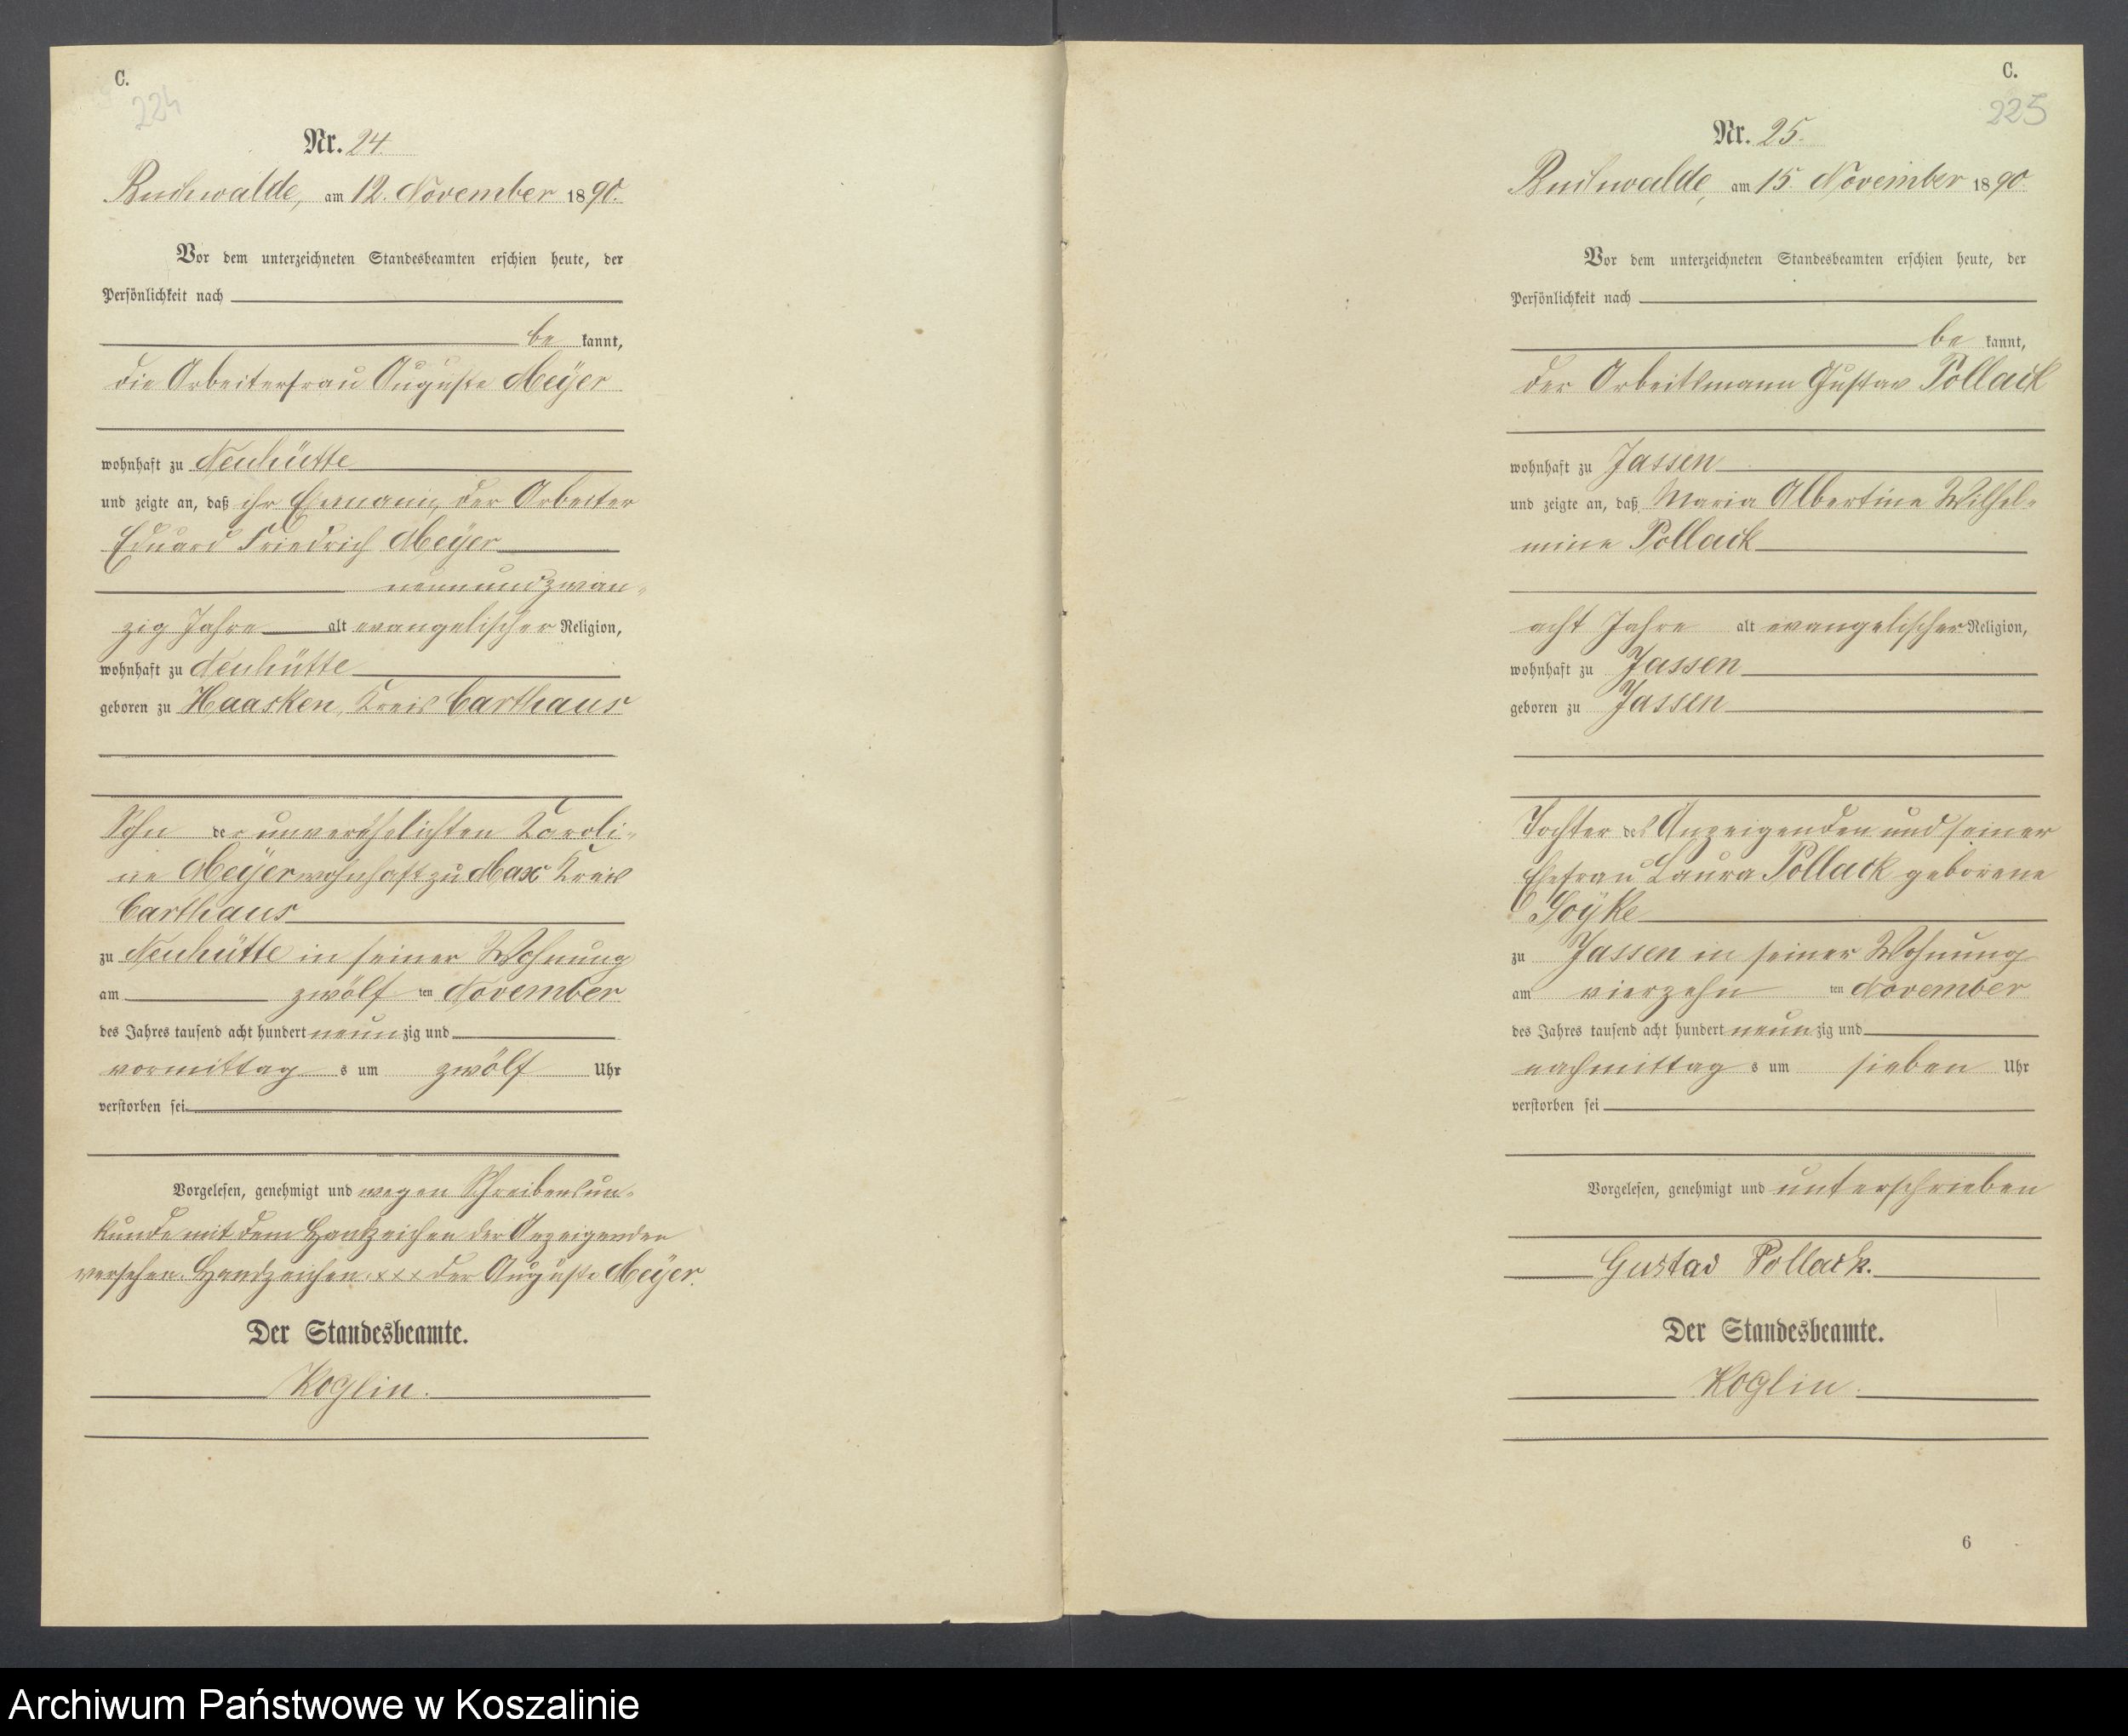 C.
224
Nr. 24.
Buchwalde, am 12. November 1890.
Vor dem unterzeichneten Standesbeamten erschien heute, der
Persönlichkeit nach
be kannt,
die Arbeiterfrau Auguste Meÿer
wohnhaft zu Neuhütte
und zeigte an, daß ihr Ehemann, der Arbeiter
Eduard Friedrich Meÿer
neunundzwan-
zig Jahre alt evangelischer Religion,
wohnhaft zu Neuhütte
geboren zu Haasken, Kreis Carthaus
Sohn der unverehelichten Karoli-
ne Meÿer wohnhaft zu Max Kreis
Carthaus
zu Neuhütte in seiner Wohnung
am zwölf ten November
des Jahres tausend acht hundert neun zig und
vormittag s um zwölf Uhr
verstorben sei.
Vorgelesen, genehmigt und wegen Schreibensun-
kunde mit dem Handzeichen der Anzeigenden
versehen. Handzeichen xxx der Auguste Meÿer.
Der Standesbeamte.
Koglin.
C.
225
Nr. 25.
Buchwalde, am 15. November 1890
Vor dem unterzeichneten Standesbeamten erschien heute, der
Persönlichkeit nach
be kannt,
der Arbeitsmann Gustav Pollack
wohnhaft zu Jassen
und zeigte an, daß Maria Albertine Wilhel-
mine Pollack
acht Jahre alt evangelischer Religion,
wohnhaft zu Jassen
geboren zu Jassen
Tochter des Anzeigenden und seiner
Ehefrau Laura Pollack geborene
Goÿke
zu Jassen in seiner Wohnung
am vierzehn ten November
des Jahres tausend acht hundert neun zig und
nachmittag s um sieben Uhr
verstorben sei
Vorgelesen, genehmigt und unterschrieben
Gustav Pollack.
Der Standesbeamte.
Koglin.
6
Archiwum Państwowe w Koszalinie